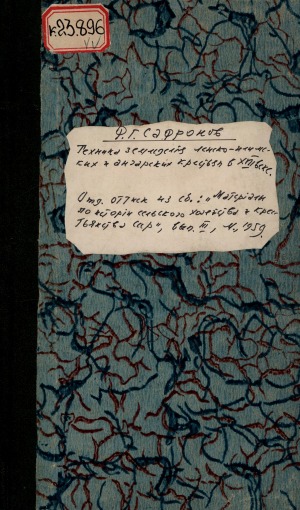 к23.896
Ф.Г. Сафронов
Техника земледелия ленско-илим-
ских и ангарских крестьян в XVII веке.
Отд. оттиск из сб.: "Материалы
по истории сельского хозяйства и крес-
тьянства СССР", вып. III, М., 1959.